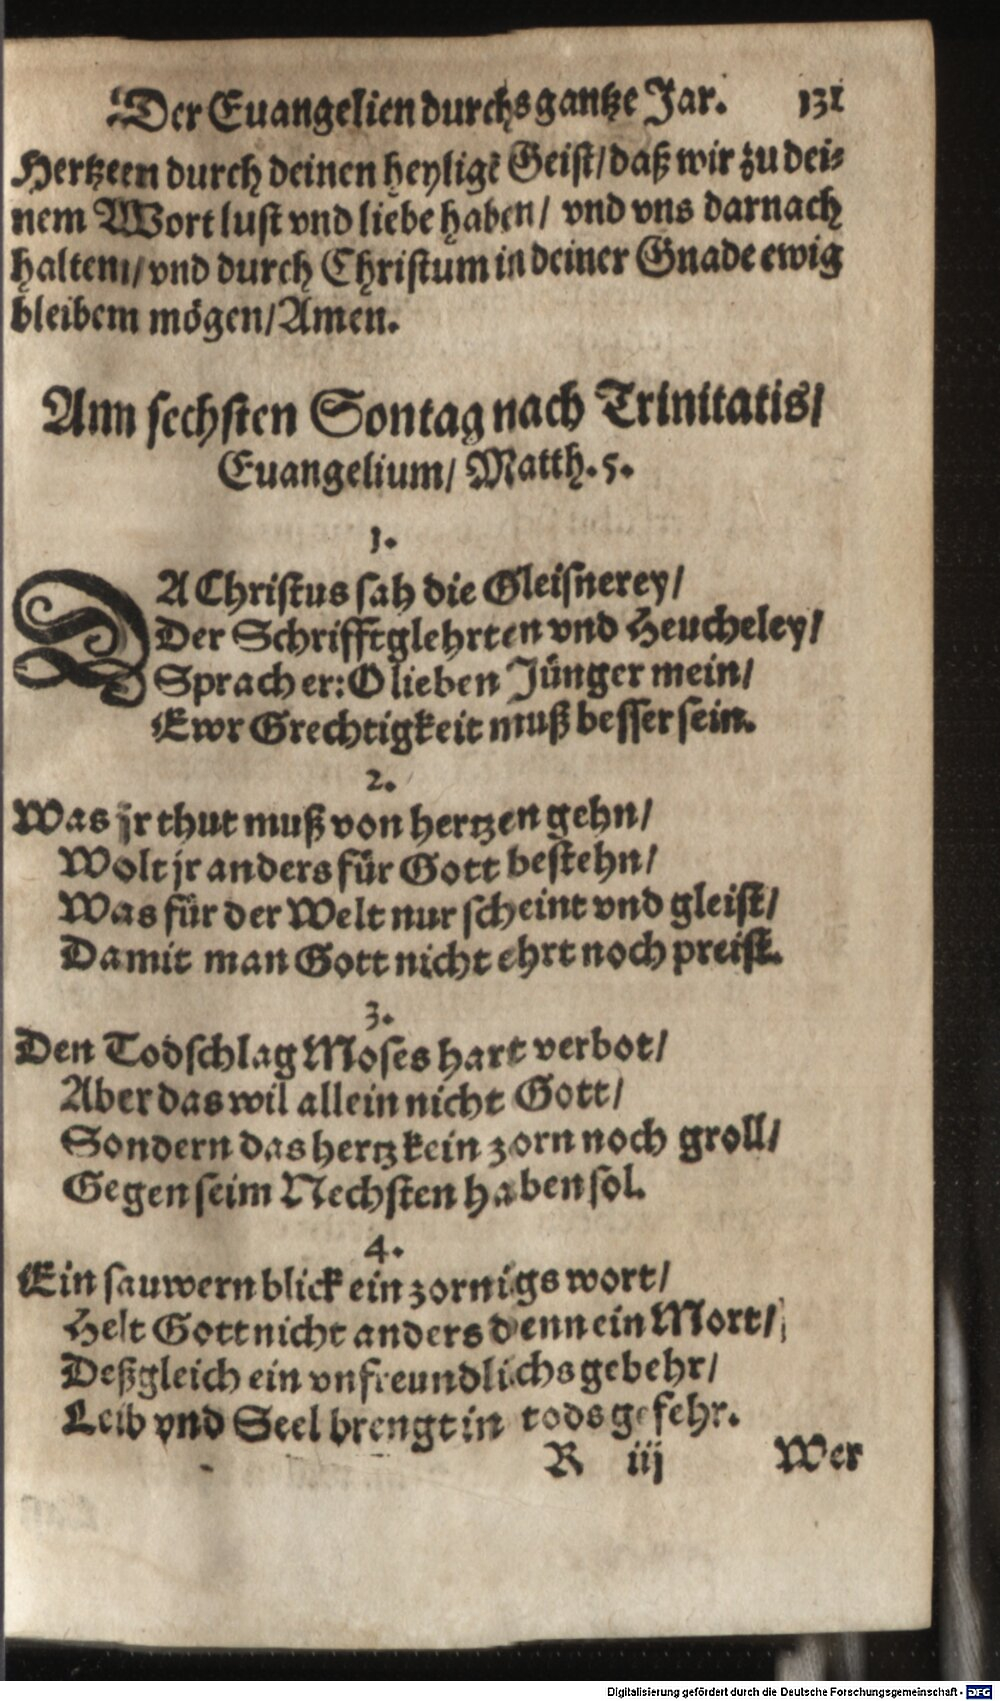 Der Euangelien durchs gantze Jar. 131
Hertzeen durch deinen heyligē Geist/ daß wir zu dei-
nem Wort lust vnd liebe haben/ vnd vns darnach
haltenı/ vnd durch Christum in deiner Gnade ewig
bleibem mögen/ Amen.
Ann sechsten Sontag nach Trinitatis/
Euangelium/ Matth. 5.
1.
DA Christus sah die Gleisnerey/
Der Schrifftglehrten vnd Heucheley/
Sprach er: O lieben Jünger mein/
Ewr Grechtigkeit muß besser sein.
2.
Was jr thut muß von hertzen gehn/
Wolt jr anders für Gott bestehn/
Was für der Welt nur scheint vnd gleist/
Damit man Gott nicht ehrt noch preist.
3.
Den Todschlag Moses hart verbot/
Aber das wil allein nicht Gott/
Sondern das hertz kein zorn noch groll/
Gegen seim Nechsten haben sol.
4.
Ein sauwern blick ein zornigs wort/
Helt Gott nicht anders denn ein Mort/
Deßgleich ein vnfreundlichs gebehr/
Leib vnd Seel brengt in tods gefehr.
R iij Wer
Digitalisierung gefördert durch die Deutsche Forschungsgemeinschaft - DFG